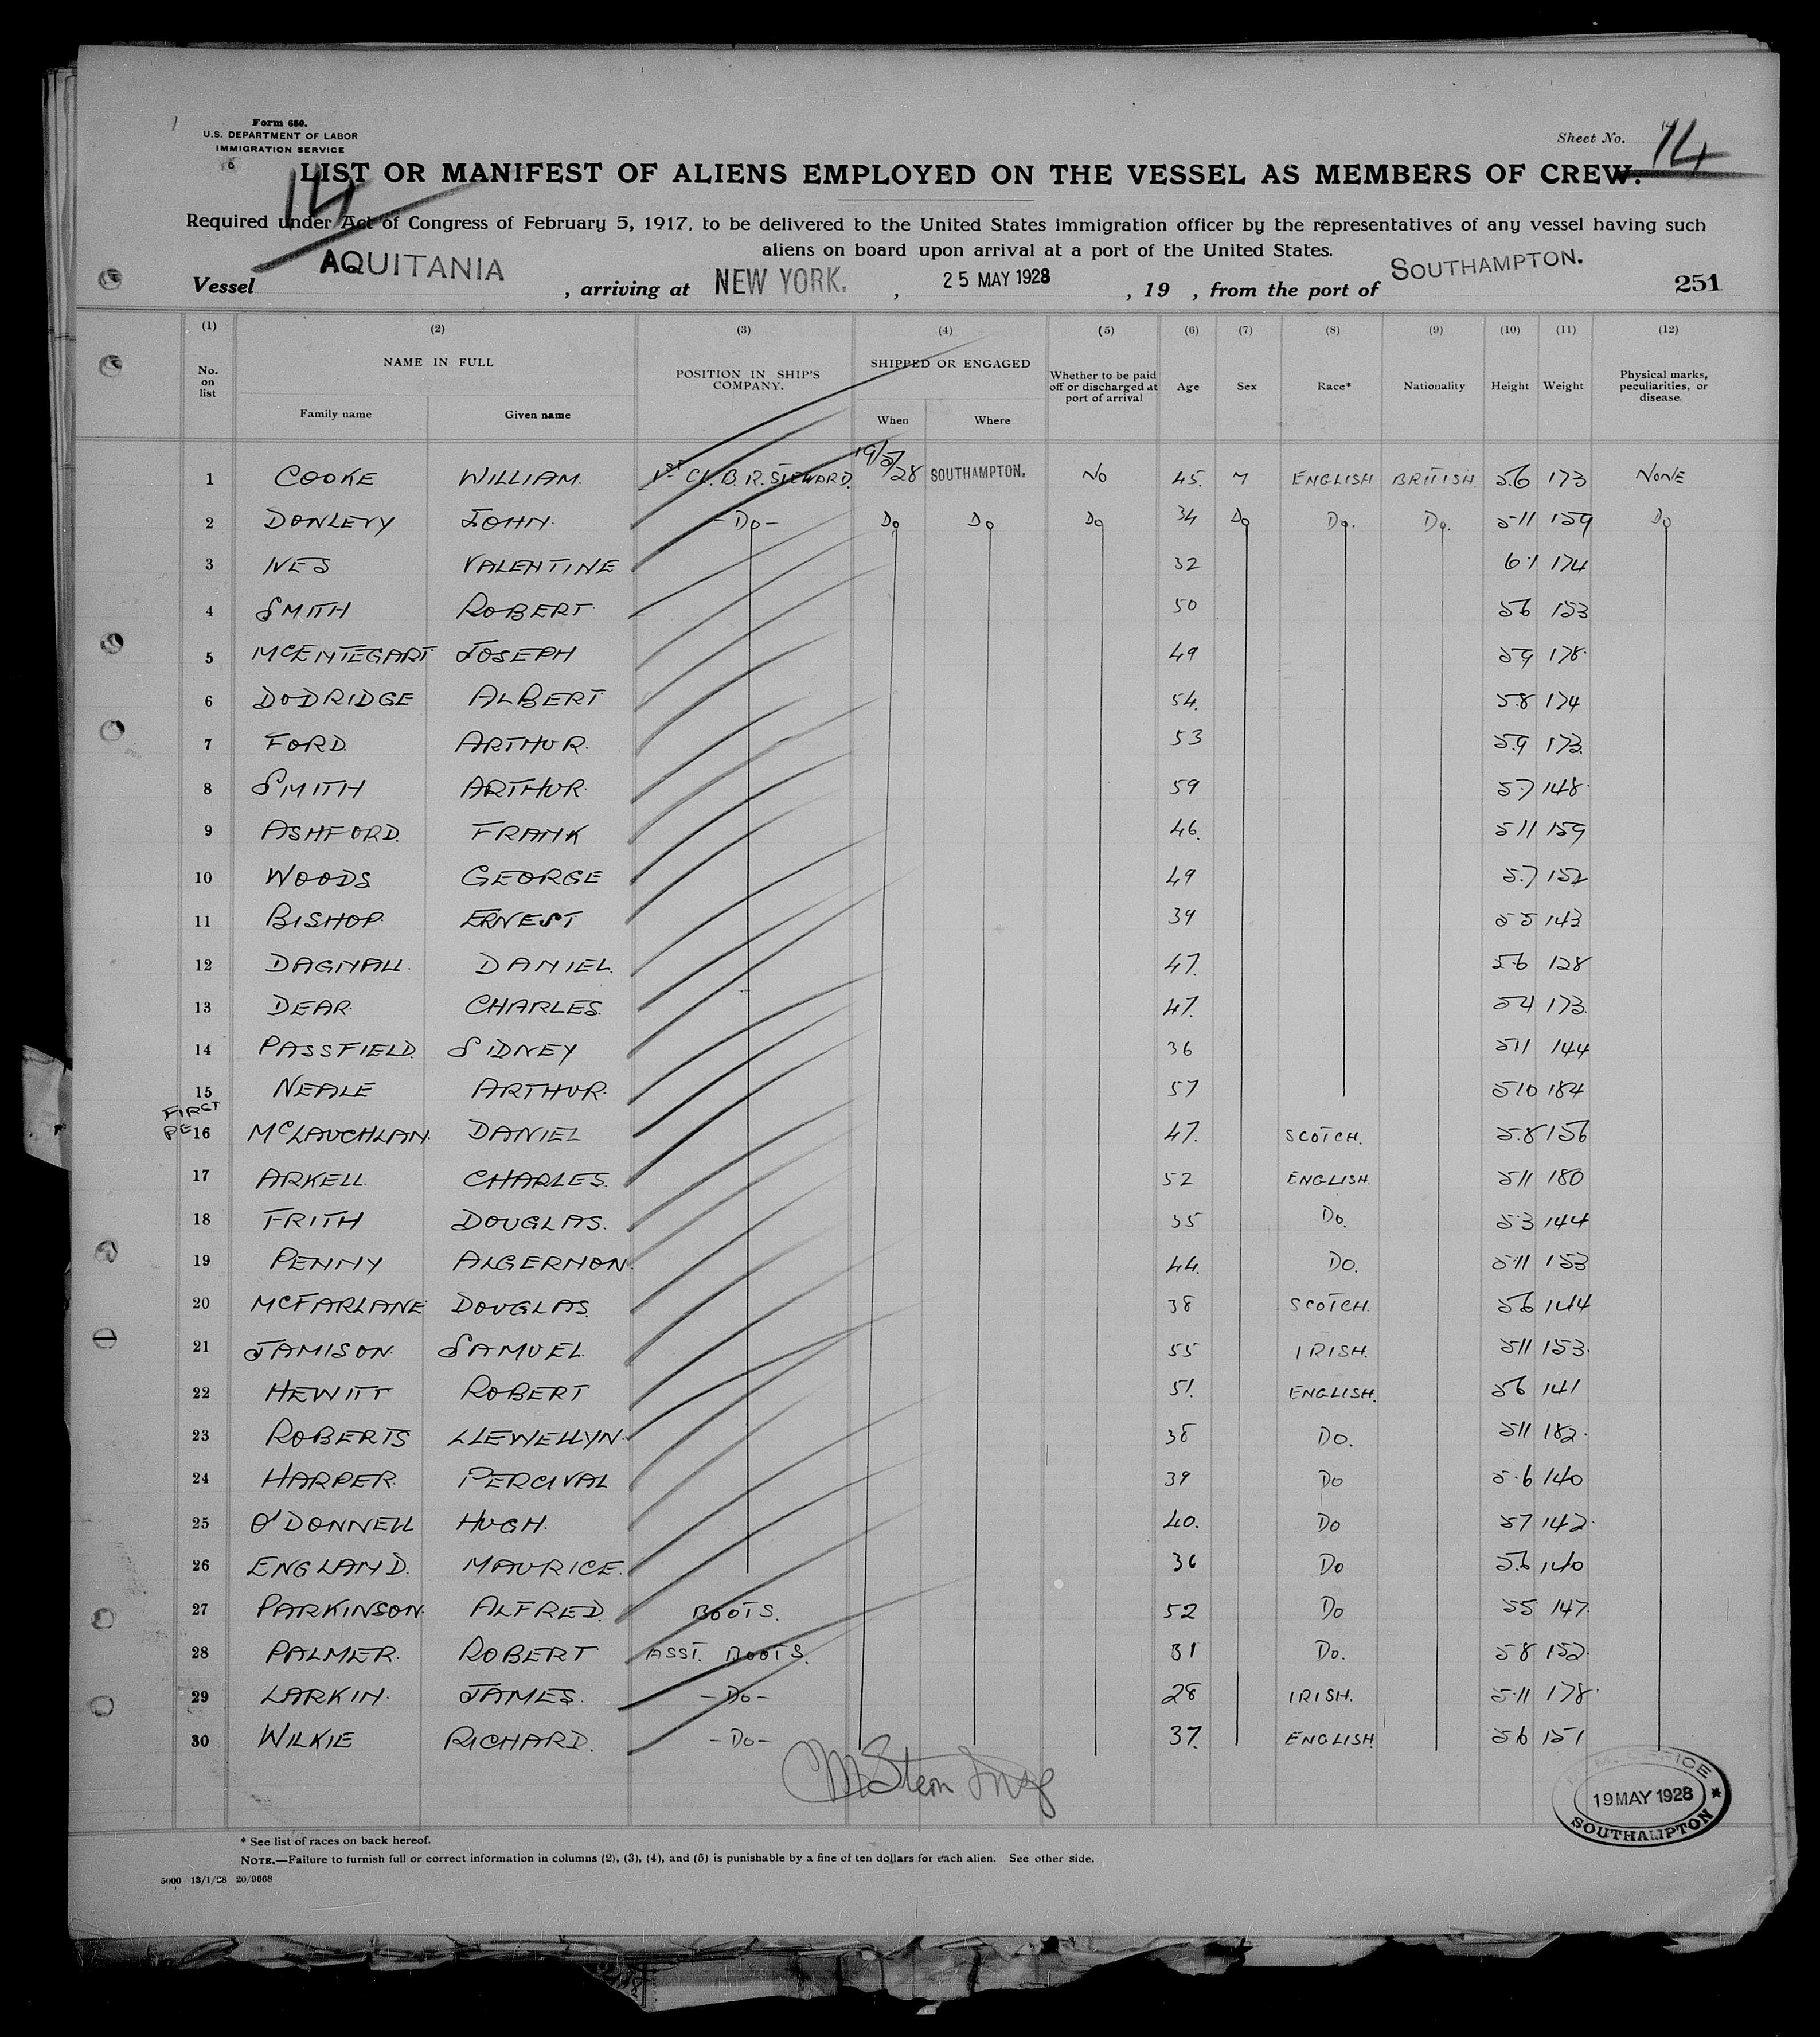 Form 680.
U.S. DEPARTMENT OF LABOR
IMMIGRATION SERVICE
Sheet No. 14
LIST OR MANIFEST OF ALIENS EMPLOYED ON THE VESSEL AS MEMBERS OF CREW.
14
Required under Act of Congress of February 5, 1917, to be delivered to the United States immigration officer by the representatives of any vessel having such
aliens on board upon arrival at a port of the United States.
Vessel AQUITANIA, arriving at NEW YORK., 25 MAY 1928, 19 , from the port of SOUTHAMPTON. 251
(1) (2) (3) (4) (5) (6) (7) (8) (9) (10) (11) (12)
No. on list NAME IN FULL Family name Given name POSITION IN SHIP'S COMPANY. SHIPPED OR ENGAGED When Where Whether to be paid off or discharged at port of arrival Age Sex Race* Nationality Height Weight Physical marks, peculiarities, or disease
1 COOKE WILLIAM. 1ST CL. B. R. STEWARD. 19/5/28 SOUTHAMPTON. NO 45. M ENGLISH BRITISH 5.6 173 NONE
2 DONLEVY JOHN. -DO- DO DO DO 34 DO DO. DO. 5-11 159 DO
3 IVES VALENTINE 32 6.1 174
4 SMITH ROBERT. 50 56 153
5 MCENTEGART JOSEPH 49 59 178.
6 DODRIDGE ALBERT 54. 5.8 174
7 FORD. ARTHUR. 53 5.9 173.
8 SMITH ARTHUR. 59 5.7 148.
9 ASHFORD. FRANK 46. 511 159
10 WOODS GEORGE 49 5.7 152
11 BISHOP. ERNEST 39 5-5 143
12 DAGNALL. DANIEL. 47. 5.6 128
13 DEAR. CHARLES. 47. 54 173.
14 PASSFIELD. SIDNEY 36 511 144
15 NEALE ARTHUR. 57 510 184
FIRST
16 MCLAUCHLAN. DANIEL 47. SCOTCH. 5.8 156
17 ARKELL. CHARLES. 52 ENGLISH. 511 180
18 FRITH DOUGLAS. 35 DO. 5.3 144
19 PENNY ALGERNON. 44. DO. 5.11 153
20 MCFARLANE DOUGLAS. 38 SCOTCH. 56 144
21 JAMISON. SAMUEL. 55 IRISH. 511 153.
22 HEWITT ROBERT 51. ENGLISH. 56 141
23 ROBERTS LLEWELLYN. 38 DO. 511 182.
24 HARPER. PERCIVAL 39 DO 5.6 140
25 O'DONNELL HUGH. 40. DO 57 142.
26 ENGLAND. MAURICE. 36 DO 5.6 140
27 PARKINSON. ALFRED. BOOTS. 52 DO 55 147.
28 PALMER. ROBERT ASST. BOOTS. 31 DO. 58 152.
29 LARKIN. JAMES. -DO- 28 IRISH. 5.11 178.
30 WILKIE RICHARD. -DO- 37. ENGLISH. 56 151
Stern Insp
OFFICE
19 MAY 1928
SOUTHAMPTON *
* See list of races on back hereof.
NOTE.—Failure to furnish full or correct information in columns (2), (3), (4), and (5) is punishable by a fine of ten dollars for each alien. See other side.
5000 13/1/28 20/9668